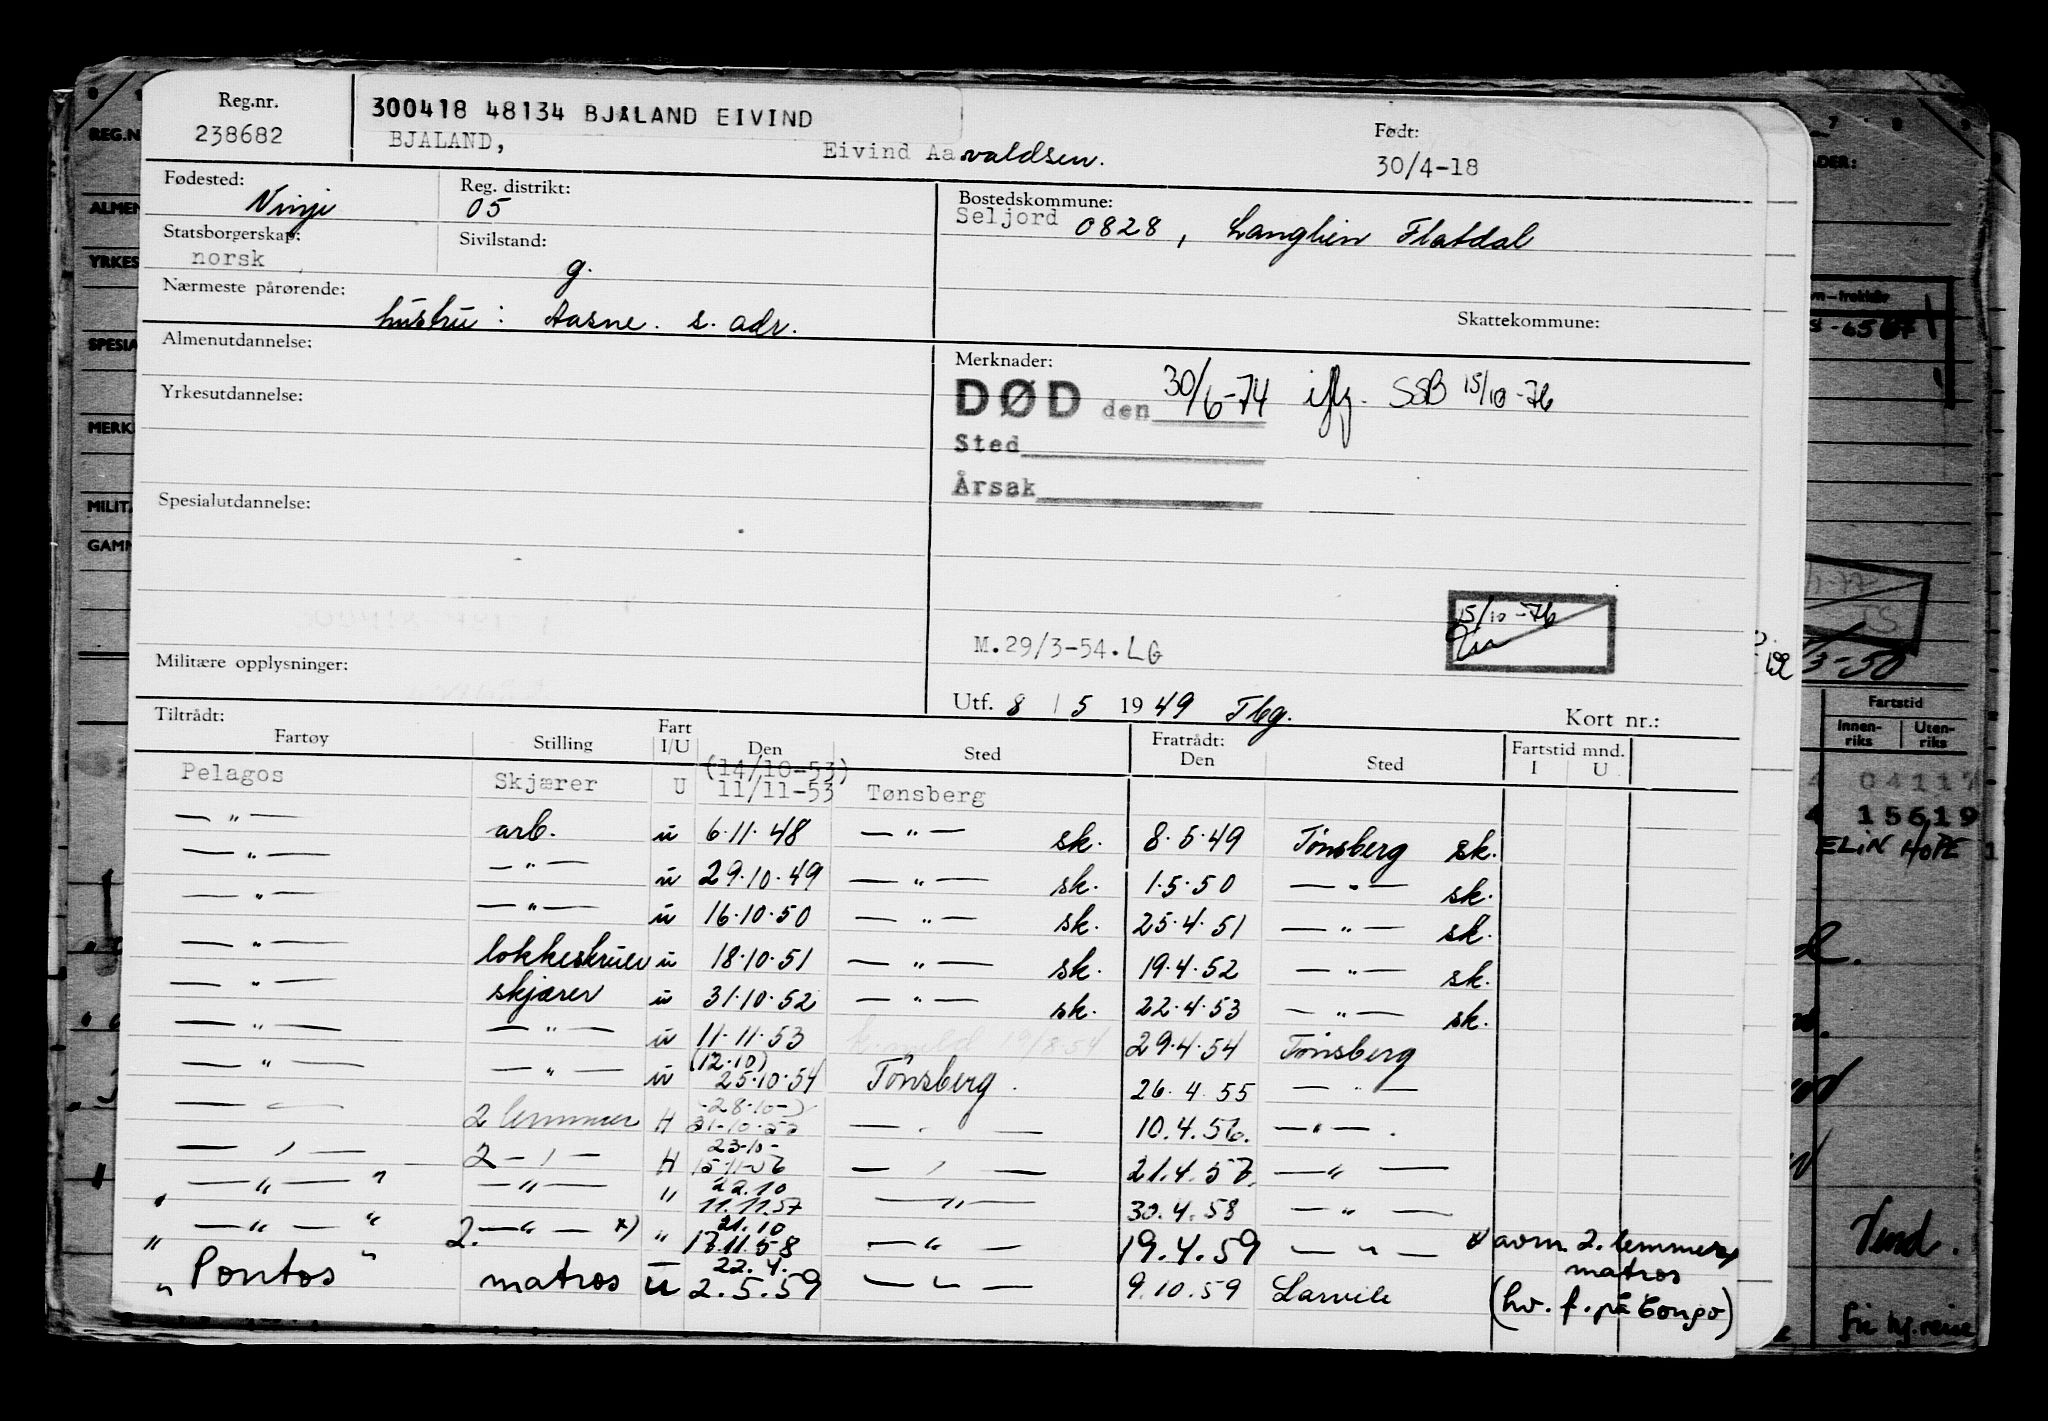 Reg.nr.
238682
300418 48134 BJÅLAND EIVIND
BJÅLAND, Eivind Aavaldsen.
Født:
30/4-18
Fødested: Vinje
Reg. distrikt:
05
Bostedskommune:
Seljord 0828, Langlien Flatdal
Statsborgerskap:
norsk
Sivilstand:
g.
Nærmeste pårørende:
hustru: Aasne. s. adr.
Skattekommune:
Almenutdannelse:
Yrkesutdannelse:
Spesialutdannelse:
Militære opplysninger:
Merknader:
DØD den 30/6-74 iflg. SSB 15/10-76
Sted
Årsak
15/10-76
M.29/3-54.LG
Utf. 8 / 5 1949 Tbg.
Kort nr.:
Tiltrådt: Fratrådt:
Fartøy Stilling Fart I/U Den Sted Den Sted Fartstid mnd. I U
Pelagos Skjærer U (14/10-53) 11/11-53 Tønsberg
— " — arb. u 6.11.48 — " — sk. 8.5.49 Tønsberg sk.
— " — — " — u 29.10.49 — " — sk. 1.5.50 — " — sk.
— " — — " — u 16.10.50 — " — sk. 25.4.51 — " — sk.
— " — lokkeskruer u 18.10.51 — " — sk. 19.4.52 — " — sk.
— " — skjærer u 31.10.52 — " — sk. 22.4.53 — " — sk.
— " — — " — u 11.11.53 29.4.54 Tønsberg
— " — — " — u (12.10) 25.10.54 Tønsberg. 26.4.55 — " —
— " — 2 lemmer H 28.10- — " — 10.4.56. — " —.
— " — 2 — " — H 23.10- 15.11.56 — " — 21.4.57. — " —
— " — " — " — " 22.10 11.11.57 — " — 30.4.58 — " —
" — " — " 2. — " — x) " 21.10 17.11.58 — " — 19.4.59 — " — x avm. 2. lemmer
matros
" Pontos " matros u 22.4. 2.5.59 — " — 9.10.59 Larvik (hv. f. på Congo)
REG.N
ALMEN
YRKES
SPESIA
MERK
MILITÆ
GAMM
3-50
Fartstid
Innen-riks Uten-riks
04117
15619
ELIN HOPE